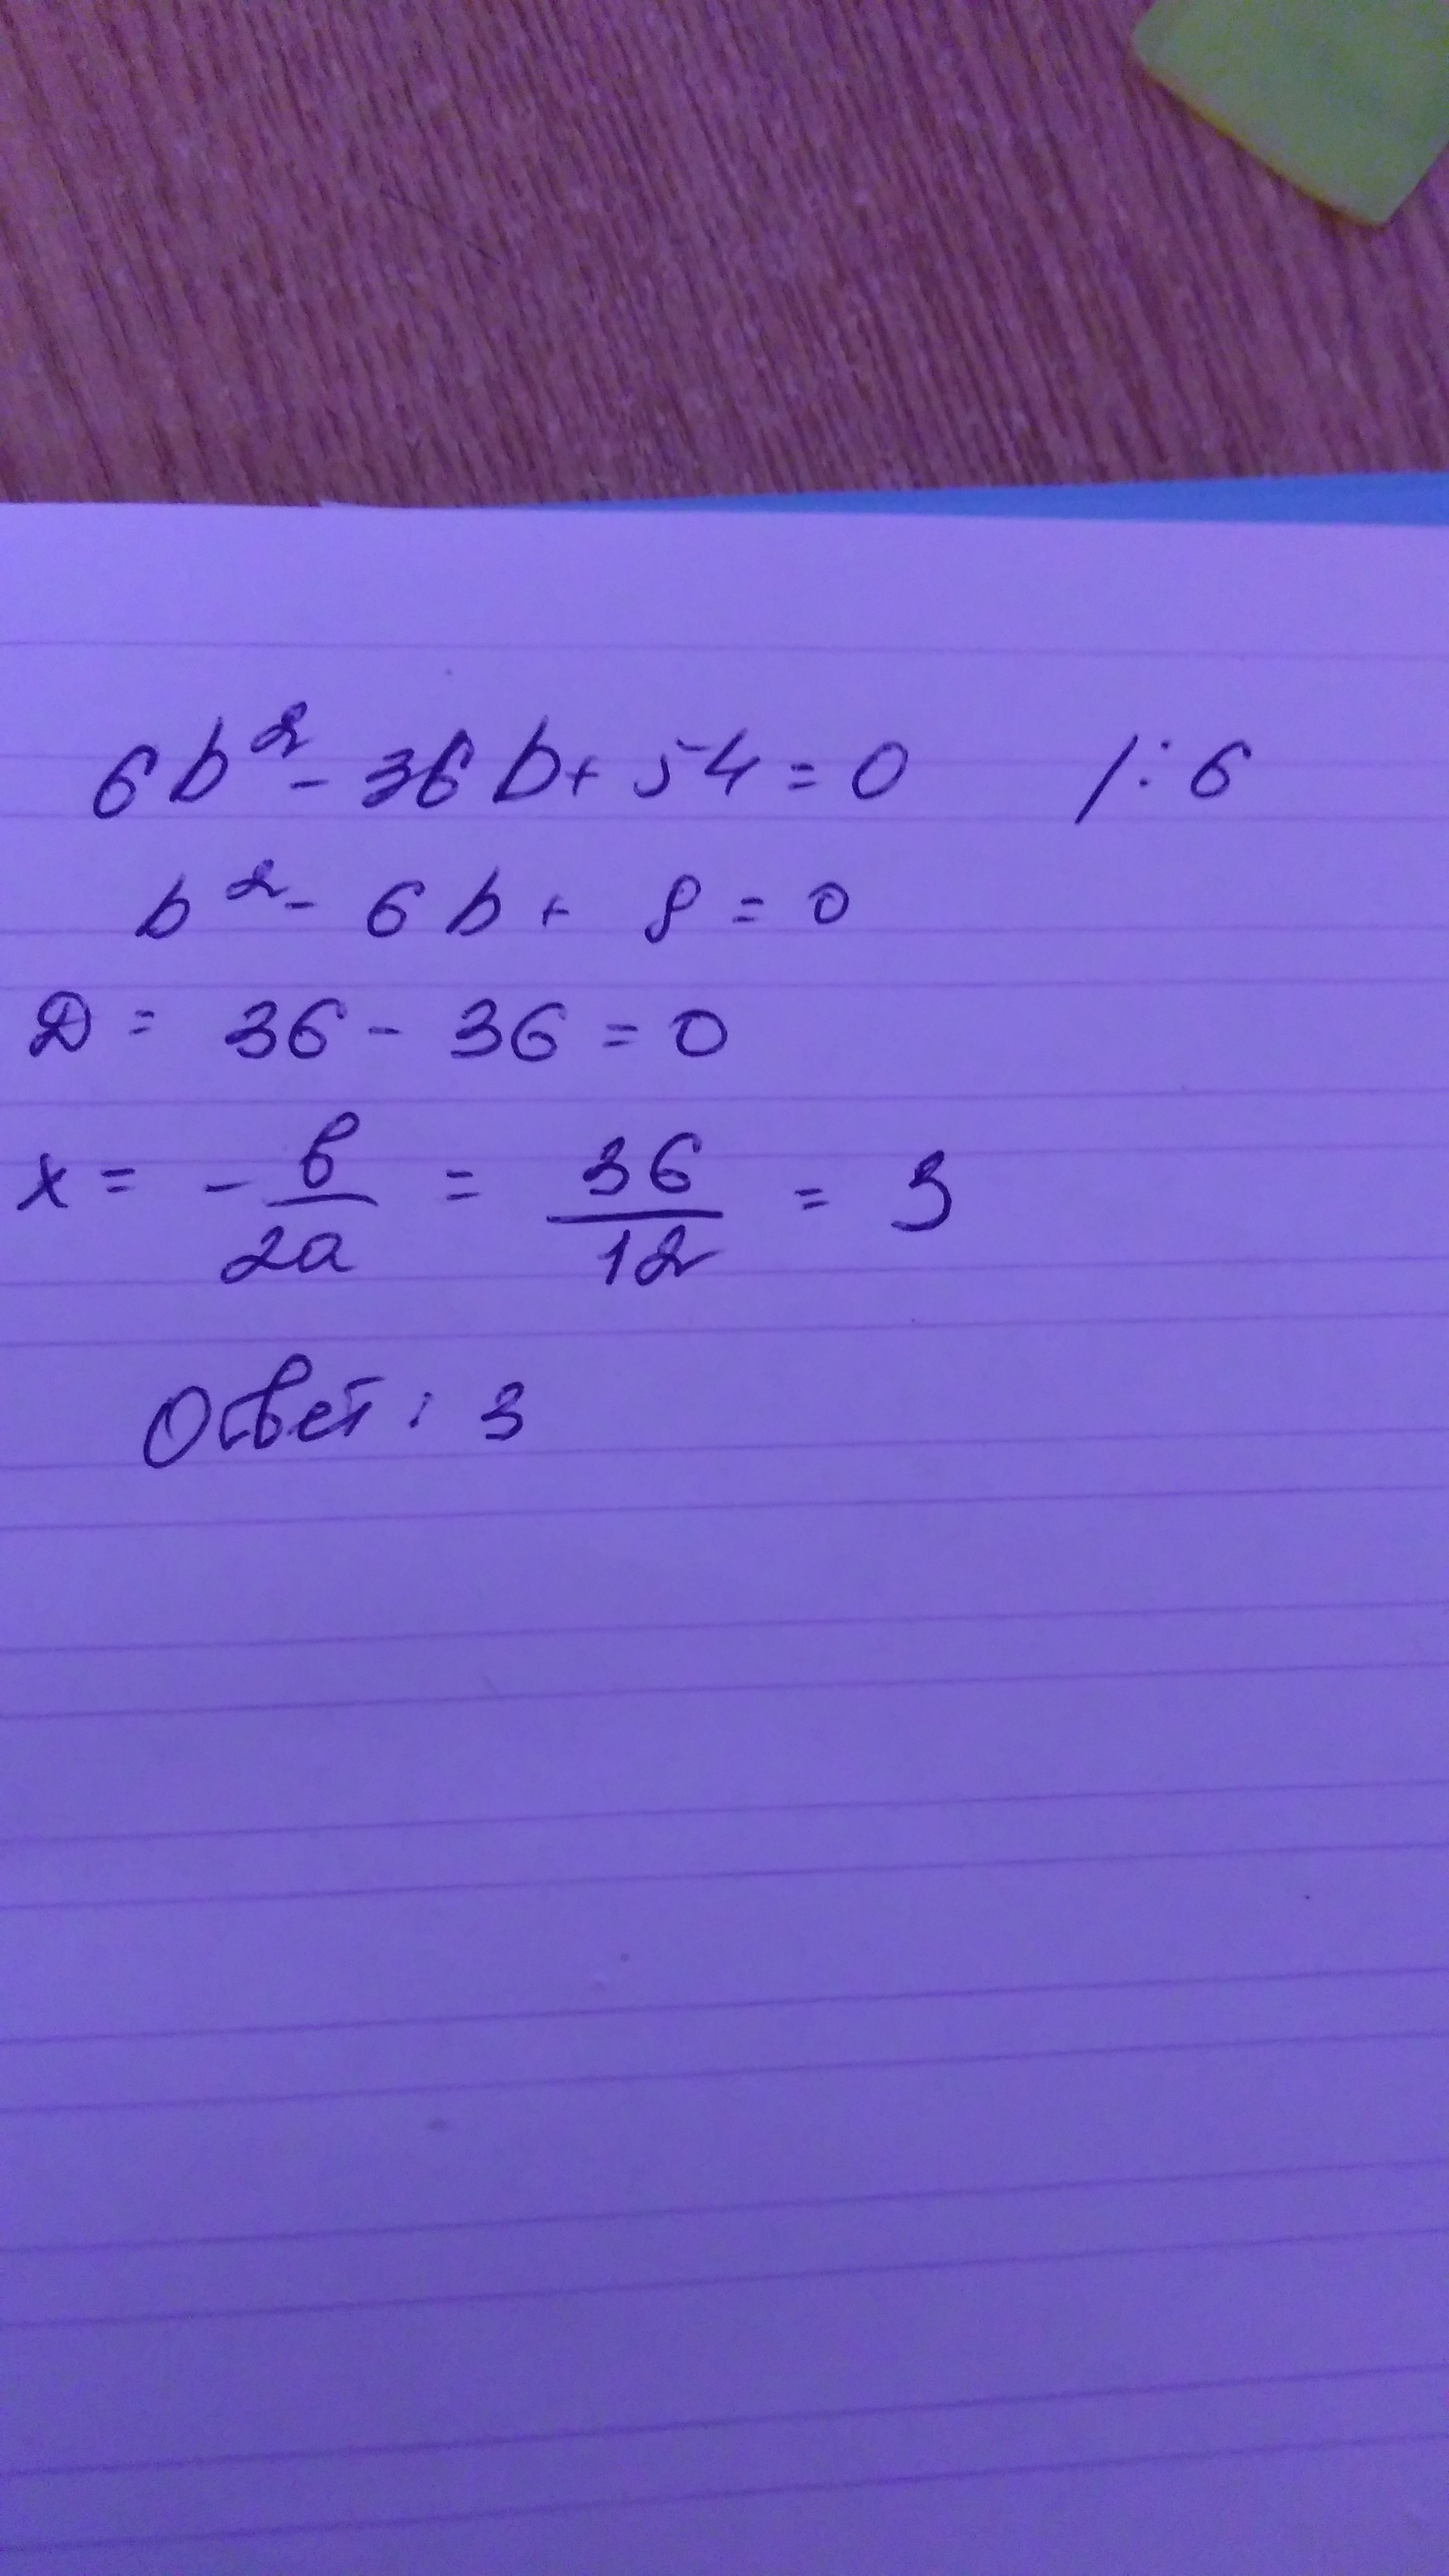 6b² - 36b + 54 = 0 /: 6
b² - 6b + 9 = 0
D = 36 - 36 = 0
x = - в/2a = 36/12 = 3
Ответ: 3